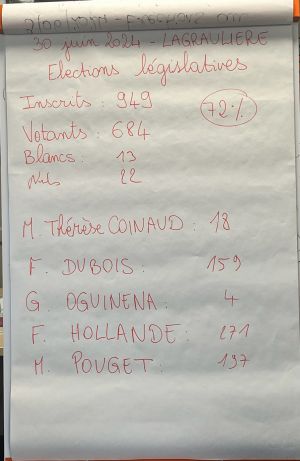 30 juin 2024 - LAGRAULIERE
Elections législatives
Inscrits : 949
72%
Votants : 684
Blancs : 13
Nuls 22
M. Thérèse COINAUD : 18
F. DUBOIS : 159
G. OGUINENA : 4
F. HOLLANDE : 271
M. POUGET : 197